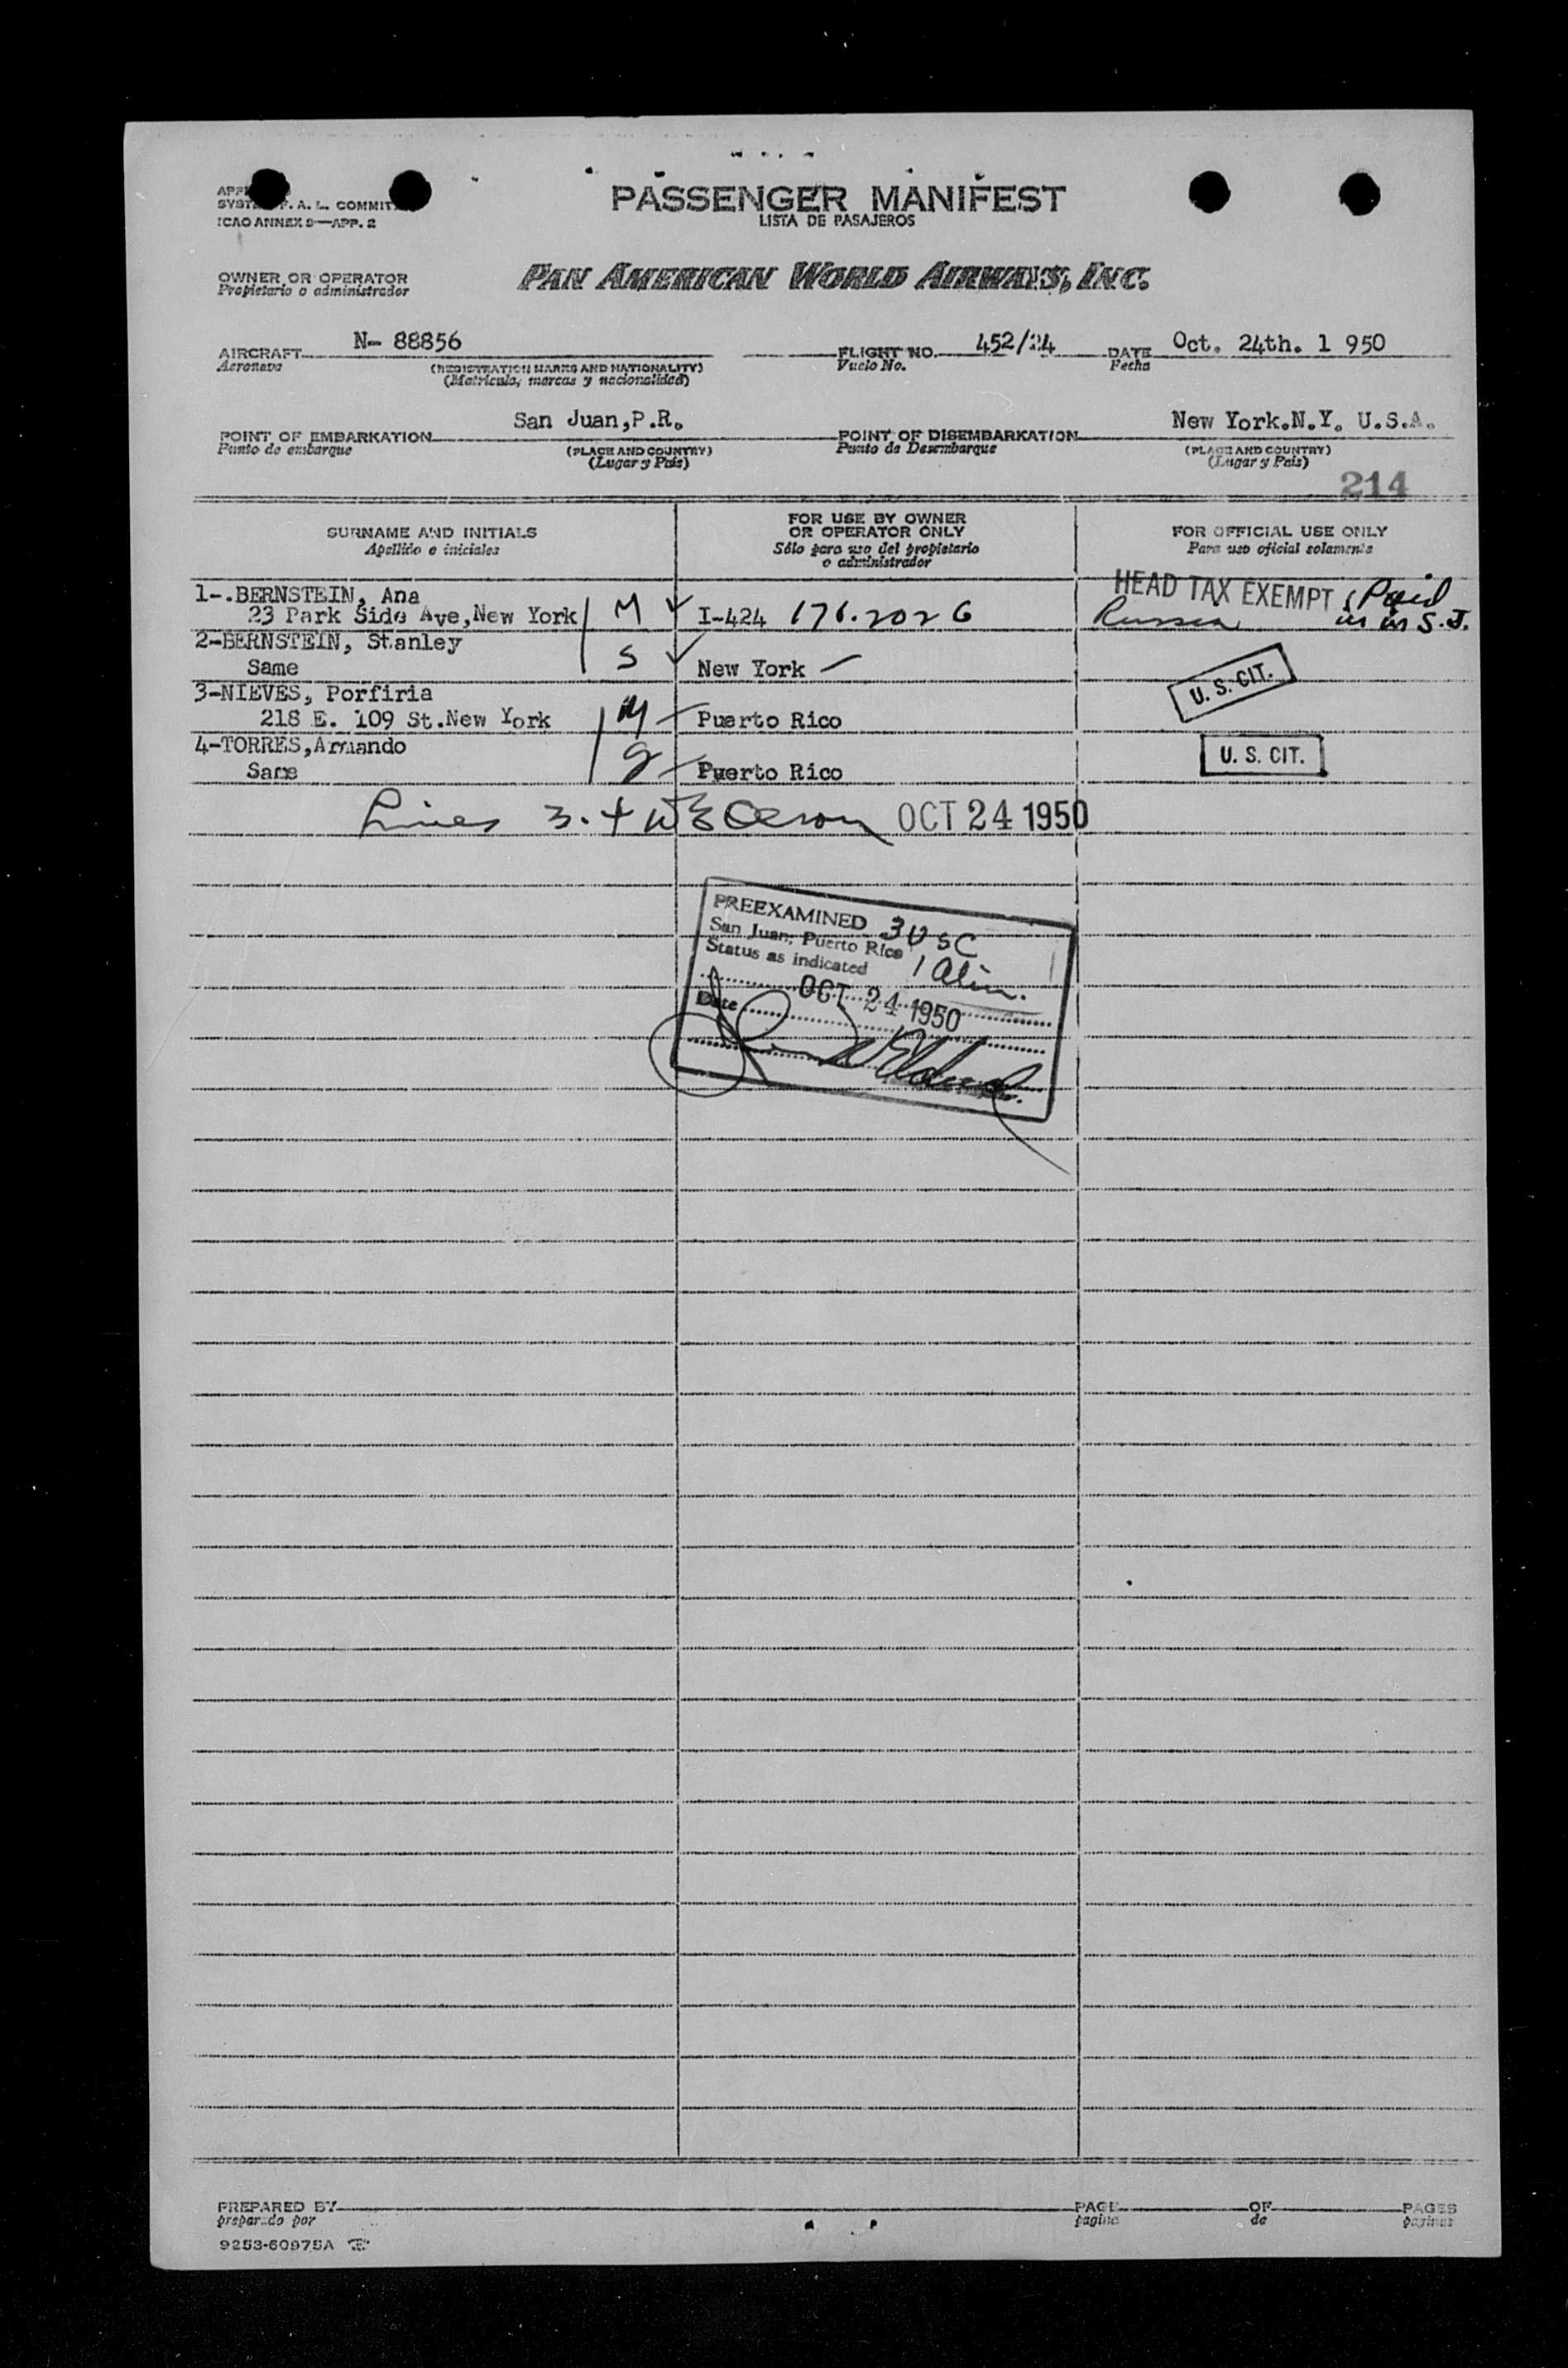 PASSENGER MANIFEST
LISTA DE PASAJEROS
ICAO ANNEX 9—APP. 2
OWNER OR OPERATOR
Propietario o administrador
PAN AMERICAN WORLD AIRWAYS, INC.
AIRCRAFT N- 88856 FLIGHT NO. 452/24 DATE Oct. 24th. 1 950
Aeronave (REGISTRATION MARKS AND NATIONALITY) Vuelo No. Fecha
(Matricula, marcas y nacionalidad)
POINT OF EMBARKATION San Juan,P.R. POINT OF DISEMBARKATION New York.N.Y. U.S.A.
Punto de embarque (PLACE AND COUNTRY) Punto de Desembarque (PLACE AND COUNTRY)
(Lugar y Pais) (Lugar y Pais)
214
SURNAME AND INITIALS FOR USE BY OWNER OR OPERATOR ONLY FOR OFFICIAL USE ONLY
Apellido e iniciales Sólo para uso del propietario o administrador Para uso oficial solamente
1-.BERNSTEIN, Ana HEAD TAX EXEMPT Paid
23 Park Side Ave,New York M I-424 176.202 6 Russia in S.J.
2-BERNSTEIN, Stanley
Same S New York U. S. CIT.
3-NIEVES, Porfiria
218 E. 109 St.New York M Puerto Rico
4-TORRES,Armando U. S. CIT.
Same Puerto Rico
Lines 3.4 OCT 24 1950
PREEXAMINED 3 USC
San Juan, Puerto Rico 1 Alien.
Status as indicated
OCT 24 1950
Date
PREPARED BY PAGE OF PAGES
preparado por pagina de paginas
9253-60975A